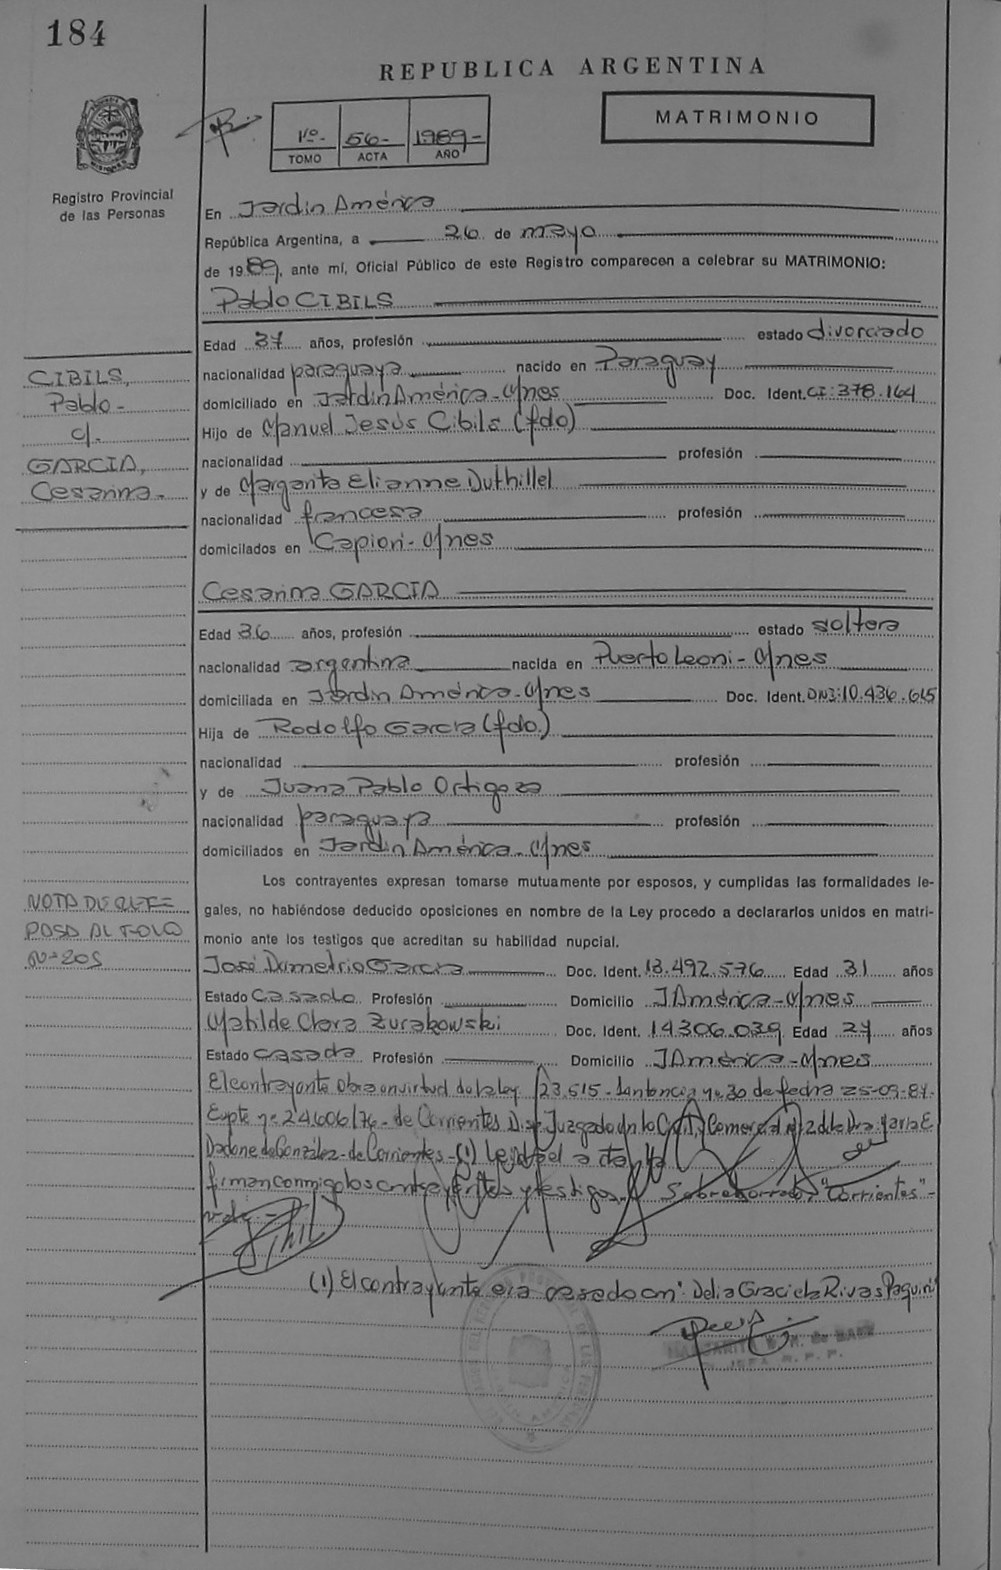 184
REPUBLICA ARGENTINA
MATRIMONIO
Vº.- 56- 1.989-
TOMO ACTA AÑO
Registro Provincial
de las Personas
En Jardin América
República Argentina, a 26 de mayo
de 1989, ante mí, Oficial Público de este Registro comparecen a celebrar su MATRIMONIO:
Pablo CIBILS
CIBILS,
Pablo-
c/.
GARCIA,
Cesarina-
Edad 37 años, profesión estado divorciado
nacionalidad paraguaya nacido en Paraguay
domiciliado en Jardin América-Mnes Doc. Ident. CI: 378.164
Hijo de Manuel Jesús Cibils (fdo)
nacionalidad profesión
y de Margarita Elianne Duthillel
nacionalidad francesa profesión
domicilados en Capiori-Mnes
Cesarina GARCIA
Edad 36 años, profesión estado soltera
nacionalidad argentina nacida en Puerto Leoni-Mnes
domiciliada en Jardin América-Mnes Doc. Ident. DNI:10.436.615
Hija de Rodolfo Garcia (fdo.)
nacionalidad profesión
y de Juana Pablo Ortigoza
nacionalidad paraguaya profesión
domiciliados en Jardin América-Mnes
Los contrayentes expresan tomarse mutuamente por esposos, y cumplidas las formalidades le-
gales, no habiéndose deducido oposiciones en nombre de la Ley procedo a declararlos unidos en matri-
monio ante los testigos que acreditan su habilidad nupcial.
NOTA DE REFE
PASA AL FOLIO
Nº 205
José Dimetrio Garcia Doc. Ident. 13.492.576 Edad 31 años
Estado Casado Profesión Domicilio J América-Mnes
Matilde Clara Zurakowski Doc. Ident. 14.306.039 Edad 27 años
Estado casada Profesión Domicilio J América-Mnes
El contrayente obra en virtud de la ley 23.515-Sentencia nº 30 de fecha 25-09-87.
Expte nº 24606/76- de Corrientes. Juzgado en lo Civil y Comercial nº 2 de la Dra. Maria E.
Dadone de González-de Corrientes-(1) Leida el acta
firman conmigo los contrayentes y testigos. Sobreborrado: "Corrientes"-
vale.-
(1) El contrayente era casado con: Delia Graciela Rivas Paquini